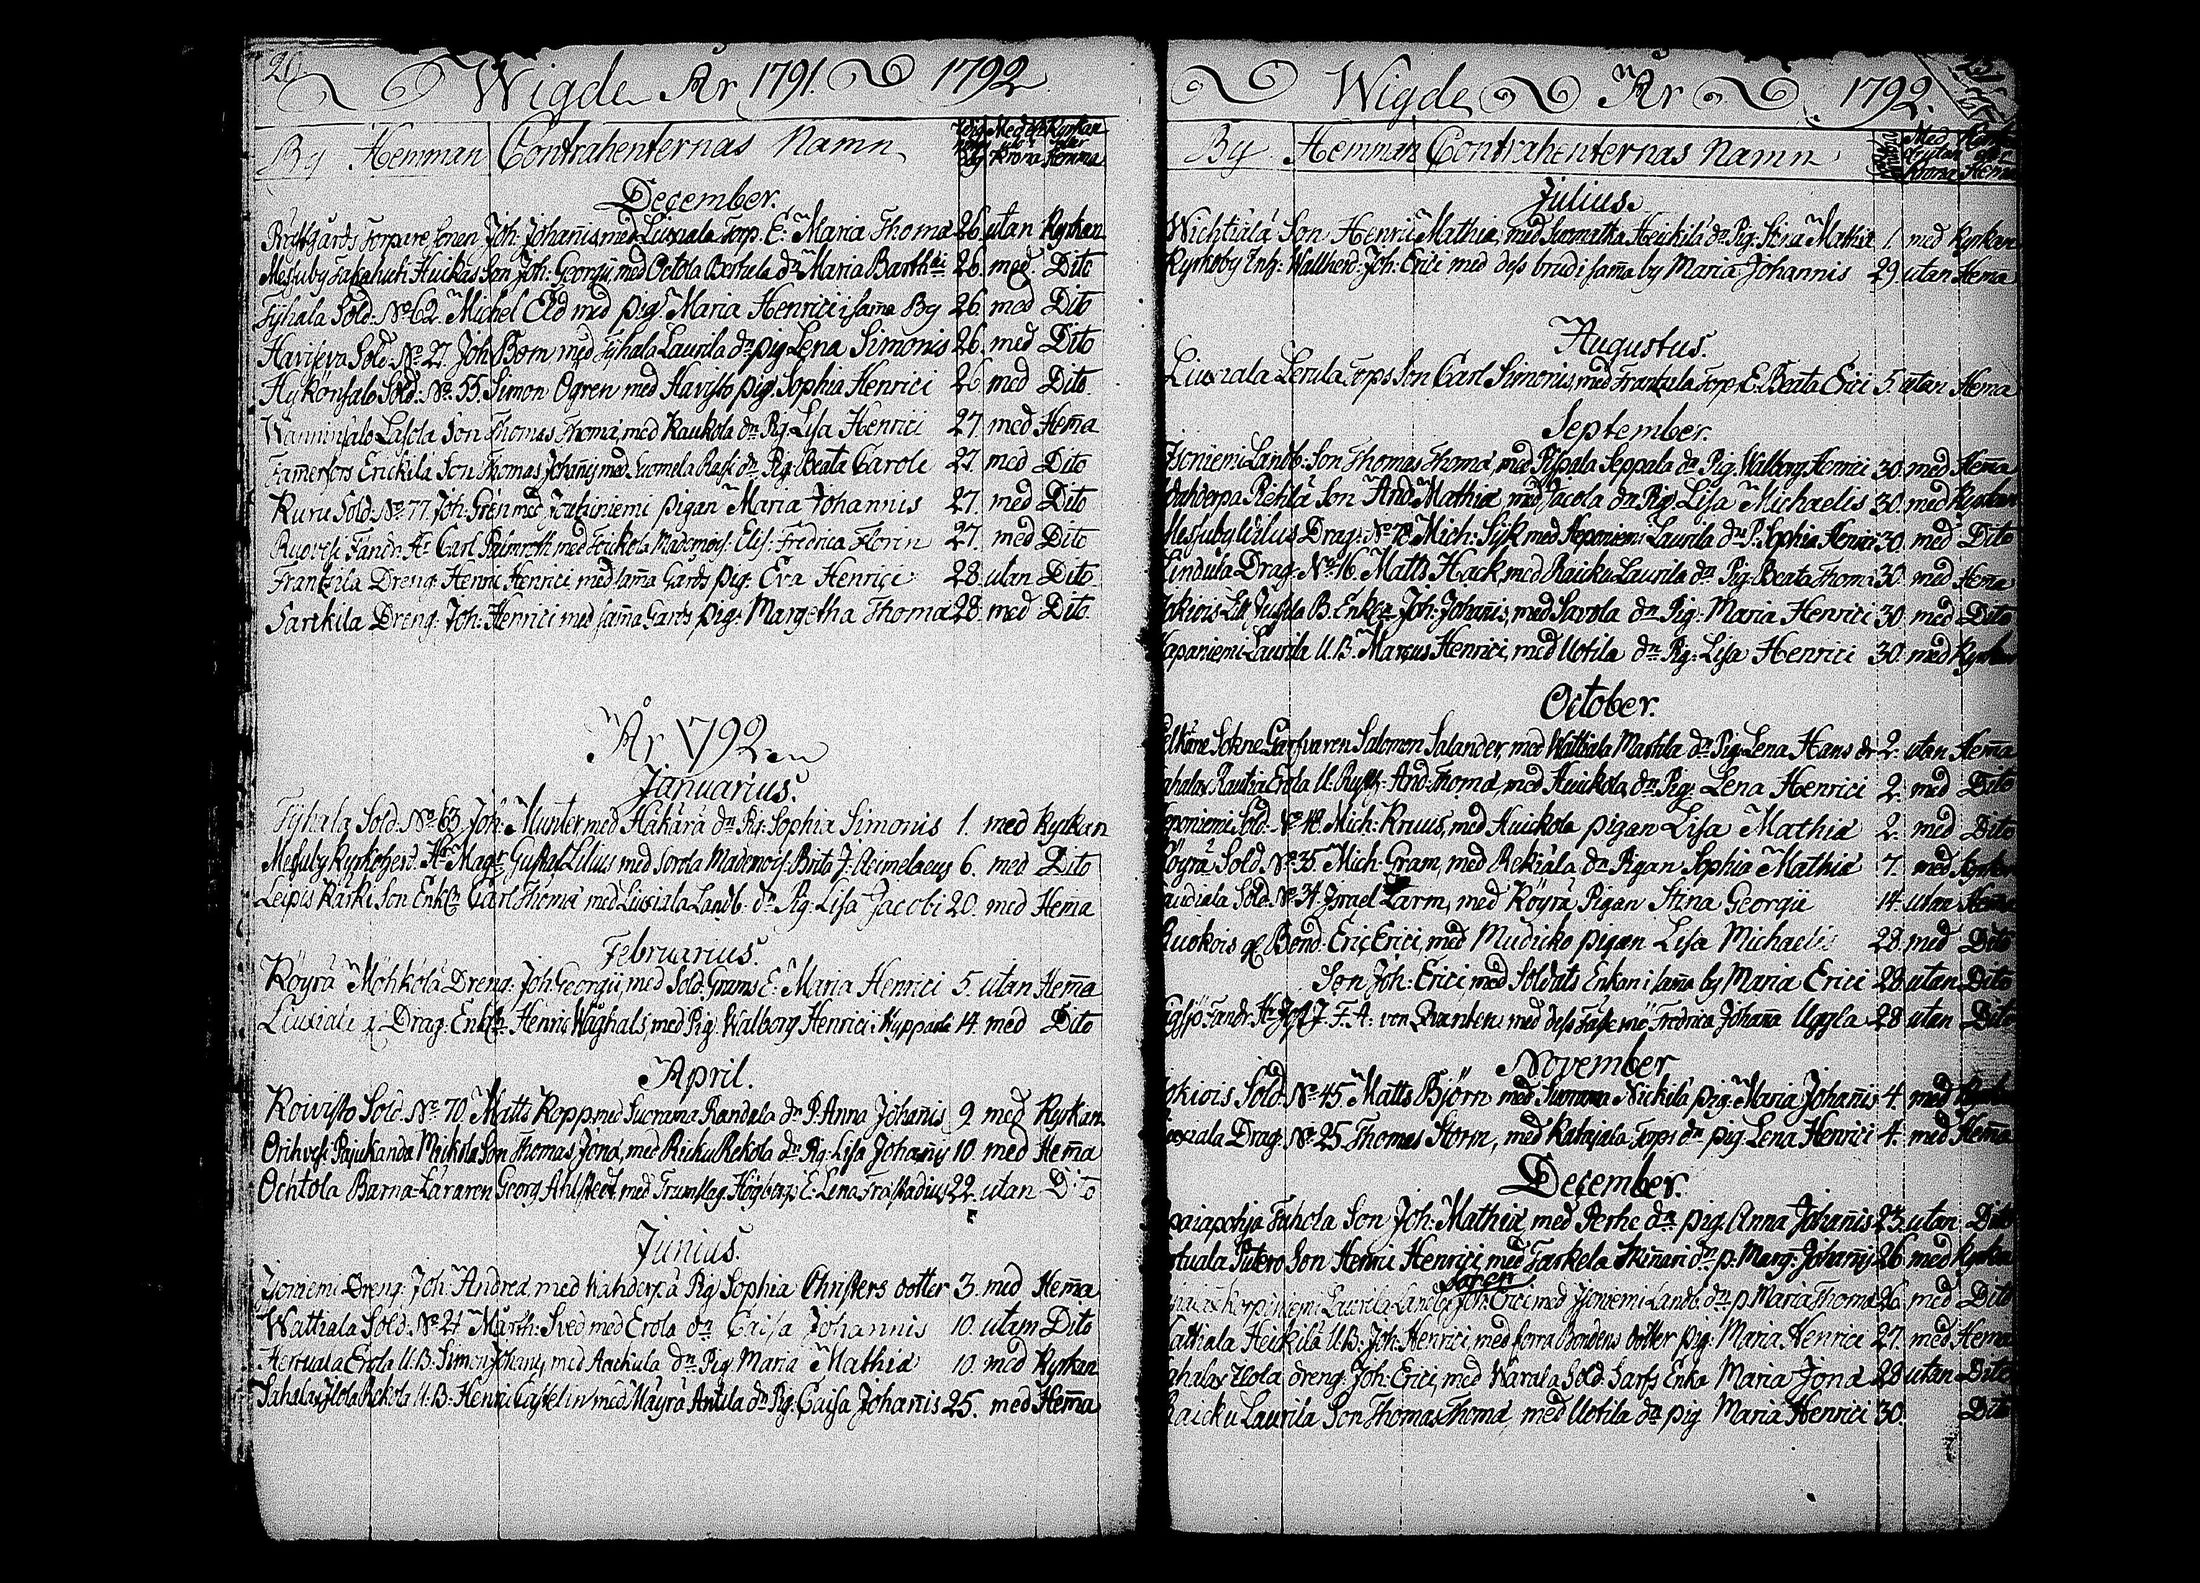 20
Wigde År 1791. 1792
By Hemman Contrahenternas Namn Med el. utan Krona Kyrkan eller Hemma
December.
Torpare sonen Joh: Johañis med Liuxiala Torp. E: Maria Thomæ 26 utan Kyrkan
Messuby Takahuti Huickas Son Joh: Georgii, med Octola Bertula dr Maria Barth: 26. med Dito
Tyhala Sold: No 62. Michel Eld med pig. Maria Henrici i sama By 26. med Dito
Haviseva Sold: No 27. Joh: Born med Tyhala Laurila dr pig Lena Simonis 26. med Dito
Hykönsalo Sold: No. 55. Simon Ogren med Havisto pig. Sophia Henrici 26 med Dito.
Wänninsalo Lasola Son Thomas Thomæ, med Kaukola dr Pig. Lisa Henrici 27. med Hema
Tamerfors Erickila Son Thomas Johañis med Suomela Rasi dr Pig: Beata Caroli 27. med Dito
Kuru Sold: No 77. Joh: Grén med pigan Maria Johannis 27. med Dito
Ruovesi Fändr: Hr Carl Palmroth med Teukola Mademois: Elis: Fredrica Florin 27. med Dito
Frantzila Dreng: Henric Henrici med sama Gårds Pig: Eva Henrici 28. utan Dito
Sarckila Dreng: Joh: Henrici med sama Gards Pig: Margetha Thomæ 28. med Dito.
År 1792
Januarius.
Tyhala Sold: No 63. Joh: Munter med Hakara dr Pig: Sophia Simonis 1. med Kyrkan
Messuby Kyrkoherd. Hr Magr Gustaf Lilius med Sorola Mademois: Brita J: Aeimelaeus 6. med Dito
Leipis Karki Son Enkl: Carl Thomæ med Liuxiala Landb: dr Pig: Lisa Jacobi 20. med Hema
Februarius.
Köyrä Möhkölä Dreng: Joh Georgii, med Sold. Grams E: Maria Henrici 5. utan Hema
Liuxiala Drag: Enkl: Henric Waghals, med Pig: Walborg Henrici 14. med Dito
April.
Koivisto Sold: No 70. Matts Kopp med Suorama Randala dr P. Anna Johañis 9. med Kyrkan
Orihvesi Pajukanda Mickola Son Thomas Jonæ, med Ricku Rekola dr Pig: Lisa Johañis 10. med Hema
Ochtola Barna-Läraren Georg Ahlstedt, med Trumslag. Högbergs E: Lena Fraskadius 22. utan Dito
Junius.
Isoniemi Dreng: Joh: Andreæ, med Wahderpä Pig Sophia Christers dotter 3. med Hema
Wattiala Sold: No 24 Märth: Sved med Erola dr Caisa Johannis 10. utan Dito
Hertuala Erola U:B: Simon Johañis, med Auckula dr Pig Maria Mathiæ 10. med Kyrkan
Sahalax Ylola Rekola U:B: Henric Castelin med Mäyrä Antila dr Pig: Caisa Johañis 25. med Hema
Wigde År 1792.
By Hemman Contrahenternas Namn Med el. utan Krona
Julius.
Wichtiälä Son Henric Mathiæ, med Suomatka Heickilä dr Pig: Stina Mathiæ 1. med Kyrkan
Kyrkoby Joh: Erici med dess brud i sama by Maria Johannis 29. utan Hema
Augustus.
Liuxiala Lerula Torps Son Carl Simonis, med Frantzila Torp: E. Beata Erici 5. utan Hema
September.
Isoniemi Landb: Son Thomas Thomæ, med Pispala Seppala dr Pig: Walborg Henrici 30. med Hema
Wahderpa Rehlä Son And: Mathiæ, med Jacola dr Pig: Lisa Michaelis 30. med Kyrkan
Messuby Wilus Drag: No 78. Mich: Sijk med Heponiemi Laurila dr P. Sophia Henrici 30. med Dito
Lindula Drag: No 16. Matts Hack, med Raicku Laurila dr Pig: Beata Thomæ 30. med Hema
Jussila B. Enkl: Joh: Johañis, med Savola dr Pig: Maria Henrici 30. med Dito
Haponiemi Laurila U.B. Marcus Henrici, med Uotila dr Pig: Lisa Henrici 30. med Kyrkan
October.
Pelkäne Sokne Garfvaren Salomon Salander, med Wattiala Martila dr Pig: Lena Hans dr 2. utan Hema
Sahalax Rautia Erola U: Rytt: And: Thomæ, med Huickola dr Pig: Lena Henrici 2. med Dito
Heponiemi Sold: No 48. Mich: Kruus, med Huickola pigan Lisa Mathiæ 2. med Dito
Köyrä Sold: No 35. Mich: Gram, med Rekiälä dr Pigan Sophia Mathiæ 7. med Kyrkan
Sold: No 34. Israel Larm, med Köyrä Pigan Stina Georgii 14. utan Hema
Bond: Eric Erici, med Mudicko pigan Lisa Michaelis 28. med Dito
Son Joh: Erici, med Soldats Enkan i sama by Maria Erici 28. utan Dito
Fändr: Hr J. F. A: von Qvanten med dess Fästemö Fredrica Johaña Uggla 28 utan Dito
November
Sold: No 45. Matts Björn med Suorama Nickilä pig: Maria Johañis 4. med Kyrkan
Drag: No 25. Thomas Storm, med Katajala Torps dr pig: Lena Henrici 4. med Hema
December.
Son Joh: Mathiæ, med Perhe dr pig: Anna Johañis 23. utan Dito
Putero Son Henric Henrici, med Tarkela Skinari dr p: Marg: Johañis 26. med Kyrkan
Laurila Landb: Joh: Erici med Isoniemi Landb: dr p. Maria Thomæ 26. med Dito
Wattiala Heickilä U:B: Joh: Henrici, med forra Bondens dotter pig: Maria Henrici 27. med Hema
Sahalax Ylola dreng: Joh: Erici, med Wärala Sold. Sarfs Enka Maria Jonæ 28 utan Dito
Raicku Laurila Son Thomas Thomæ, med Uotila dr pig: Maria Henrici 30. Dito